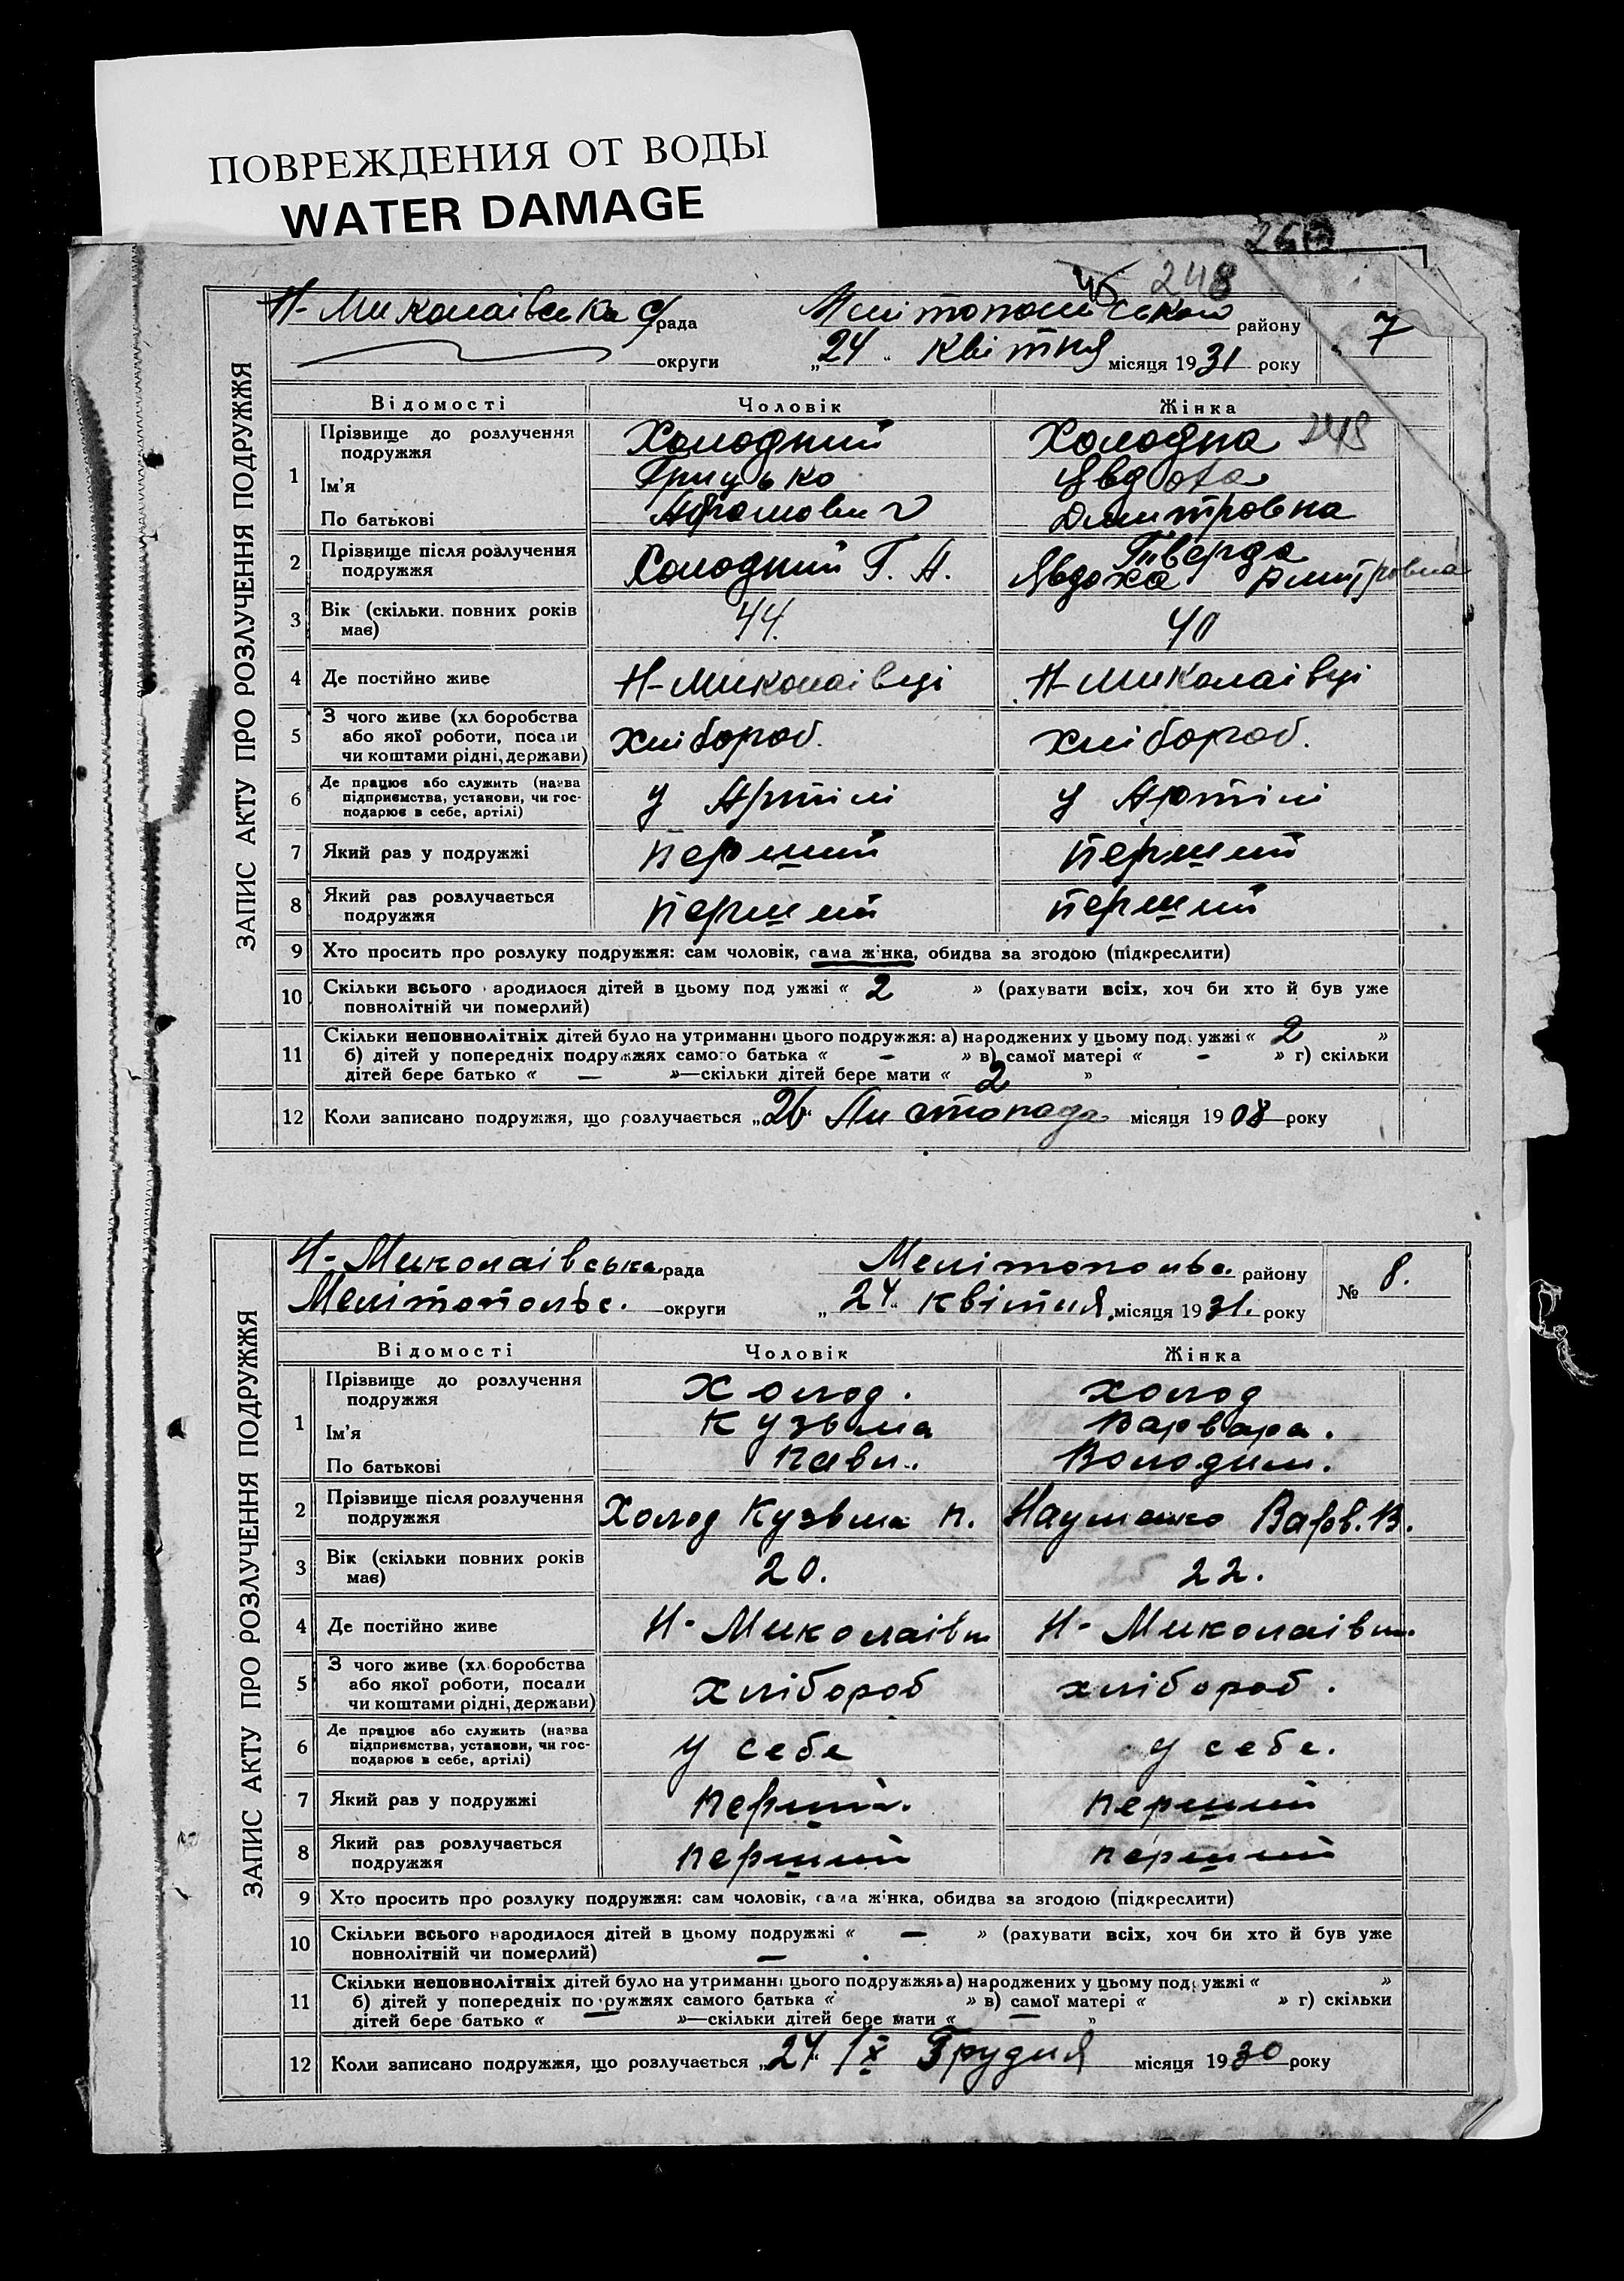 ПОВРЕЖДЕНИЯ ОТ ВОДЫ
WATER DAMAGE
248
Н-Миколаівська с/рада Мелітопольського району 7
округи „24“ квітня місяця 1931 року
ЗАПИС АКТУ ПРО РОЗЛУЧЕННЯ ПОДРУЖЖЯ
Відомості Чоловік Жінка
1 Прізвище до розлучення подружжя Холодний Холодна 248
Ім'я Грицько Явдоха
По батькові Дмитровна
2 Прізвище після розлучення подружжя Холодний Г. А. Тверда Явдоха Дмитровна
3 Вік (скільки. повних років має) 44. 40
4 Де постійно живе Н-Миколаівці Н-Миколаівці
5 З чого живе (хл.боробства або якої роботи, посади чи коштами рідні, держави) хлібороб. хлібороб.
6 Де працює або служить (назва підприємства, установи, чи господарює в себе, артілі) у Артілі у Артілі
7 Який раз у подружжі перший перший
8 Який раз розлучається подружжя перший перший
9 Хто просить про розлуку подружжя: сам чоловік, сама жінка, обидва за згодою (підкреслити)
10 Скільки всього народилося дітей в цьому подружжі « 2 » (рахувати всіх, хоч би хто й був уже
повнолітній чи померлий)
11 Скільки неповнолітніх дітей було на утриманні цього подружжя: а) народжених у цьому подружжі « 2 »
б) дітей у попередніх подружжях самого батька « – » в) самої матері « – » г) скільки
дітей бере батько « — »—скільки дітей бере мати « 2 »
12 Коли записано подружжя, що розлучається „26“ Листопада місяця 1908 року
Н-Миколаівська рада Мелітопольс. району № 8.
Мелітопольс. округи „24“ квітня місяця 1931. року
ЗАПИС АКТУ ПРО РОЗЛУЧЕННЯ ПОДРУЖЖЯ
Відомості Чоловік Жінка
1 Прізвище до розлучення подружжя Холод. Холод
Ім'я Кузьма Варвара.
По батькові Павл. Володим.
2 Прізвище після розлучення подружжя Холод Кузьма П. Науменко Варв. В.
3 Вік (скільки повних років має) 20. 22.
4 Де постійно живе Н-Миколаівц Н-Миколаівц.
5 З чого живе (хл.боробства або якої роботи, посади чи коштами рідні, держави) хлібороб хлібороб.
6 Де працює або служить (назва підприємства, установи, чи господарює в себе, артілі) у себе у себе.
7 Який раз у подружжі перший. перший
8 Який раз розлучається подружжя перший перший
9 Хто просить про розлуку подружжя: сам чоловік, сама жінка, обидва за згодою (підкреслити)
10 Скільки всього народилося дітей в цьому подружжі « — » (рахувати всіх, хоч би хто й був уже
повнолітній чи померлий) —
11 Скільки неповнолітніх дітей було на утриманні цього подружжя: а) народжених у цьому подружжі « »
б) дітей у попередніх подружжях самого батька « » в) самої матері « » г) скільки
дітей бере батько « »—скільки дітей бере мати « — »
12 Коли записано подружжя, що розлучається „24“ Грудня місяця 1930 року